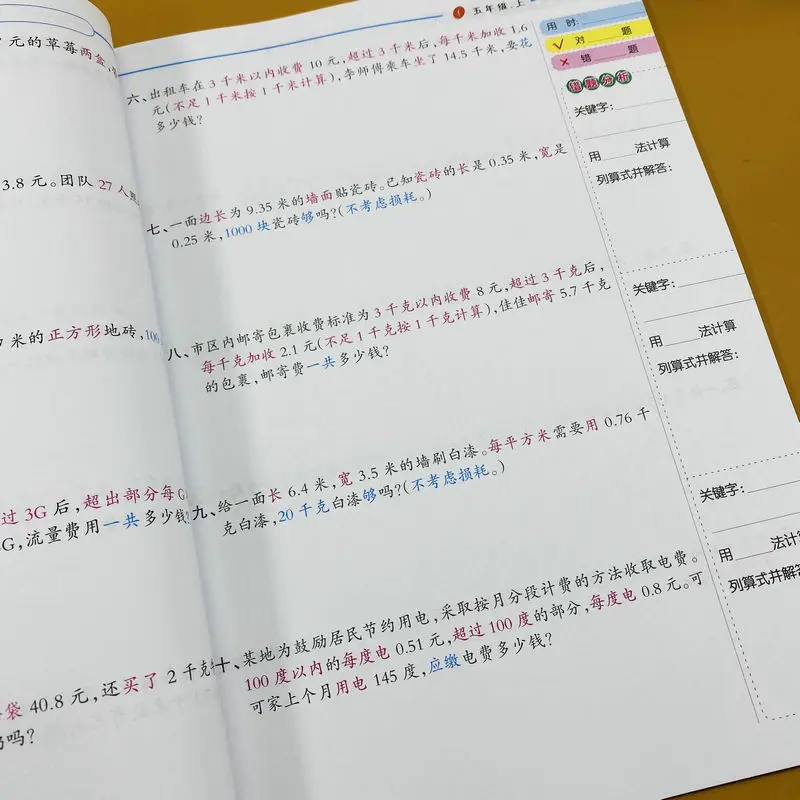 元的草莓两盒,
3.8 元。团队 27 人
米的正方形地砖,100
过 3G 后,超出部分每G
G,流量费用一共多少钱
袋 40.8 元,还买了 2 千克
吗?
五年级.上
六、出租车在 3 千米以内收费 10 元,超过 3 千米后,每千米加收 1.6
元(不足 1 千米按 1 千米计算),李师傅乘车坐了 14.5 千米,要花
多少钱?
七、一面边长为 9.35 米的墙面贴瓷砖。已知瓷砖的长是 0.35 米,宽是
0.25 米,1000 块瓷砖够吗?(不考虑损耗。)
八、市区内邮寄包裹收费标准为 3 千克以内收费 8 元,超过 3 千克后,
每千克加收 2.1 元(不足 1 千克按 1 千克计算),佳佳邮寄 5.7 千克
的包裹,邮寄费一共多少钱?
九、给一面长 6.4 米,宽 3.5 米的墙刷白漆。每平方米需要用 0.76 千
克白漆,20 千克白漆够吗?(不考虑损耗。)
十、某地为鼓励居民节约用电,采取按月分段计费的方法收取电费。
100 度以内的每度电 0.51 元,超过 100 度的部分,每度电 0.8 元。可
可家上个月用电 145 度,应缴电费多少钱?
用 时:
✓ 对 题
× 错 题
错题分析
关键字:
用____法计算
列算式并解答:
关键字:
用____法计算
列算式并解答:
关键字:
用____法计
列算式并解答